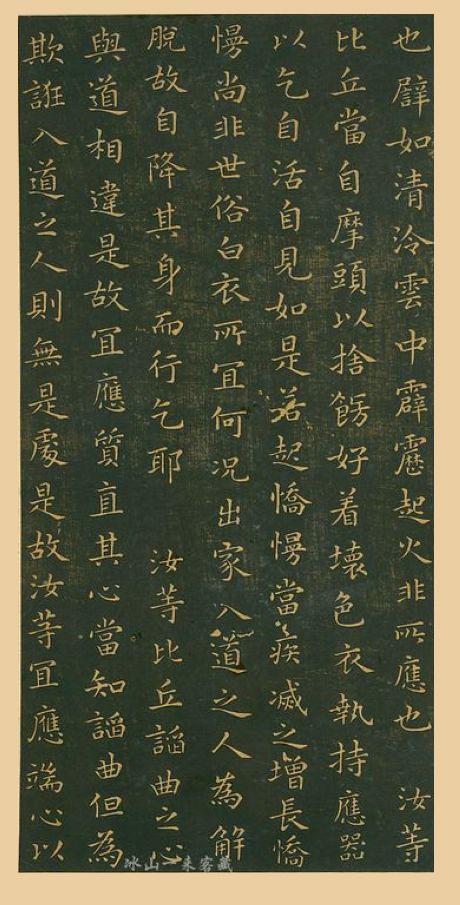 也譬如清冷雲中霹靂起火非所應也　汝等
比丘當自摩頭以捨餝好着壞色衣執持應器
以乞自活自見如是若起憍慢當疾滅之增長憍
慢尚非世俗白衣所宜何況出家入道之人為解
脫故自降其身而行乞耶　汝等比丘謟曲之心
與道相違是故宜應質直其心當知謟曲但為
欺誑入道之人則無是處是故汝等宜應端心以
冰山一来客藏